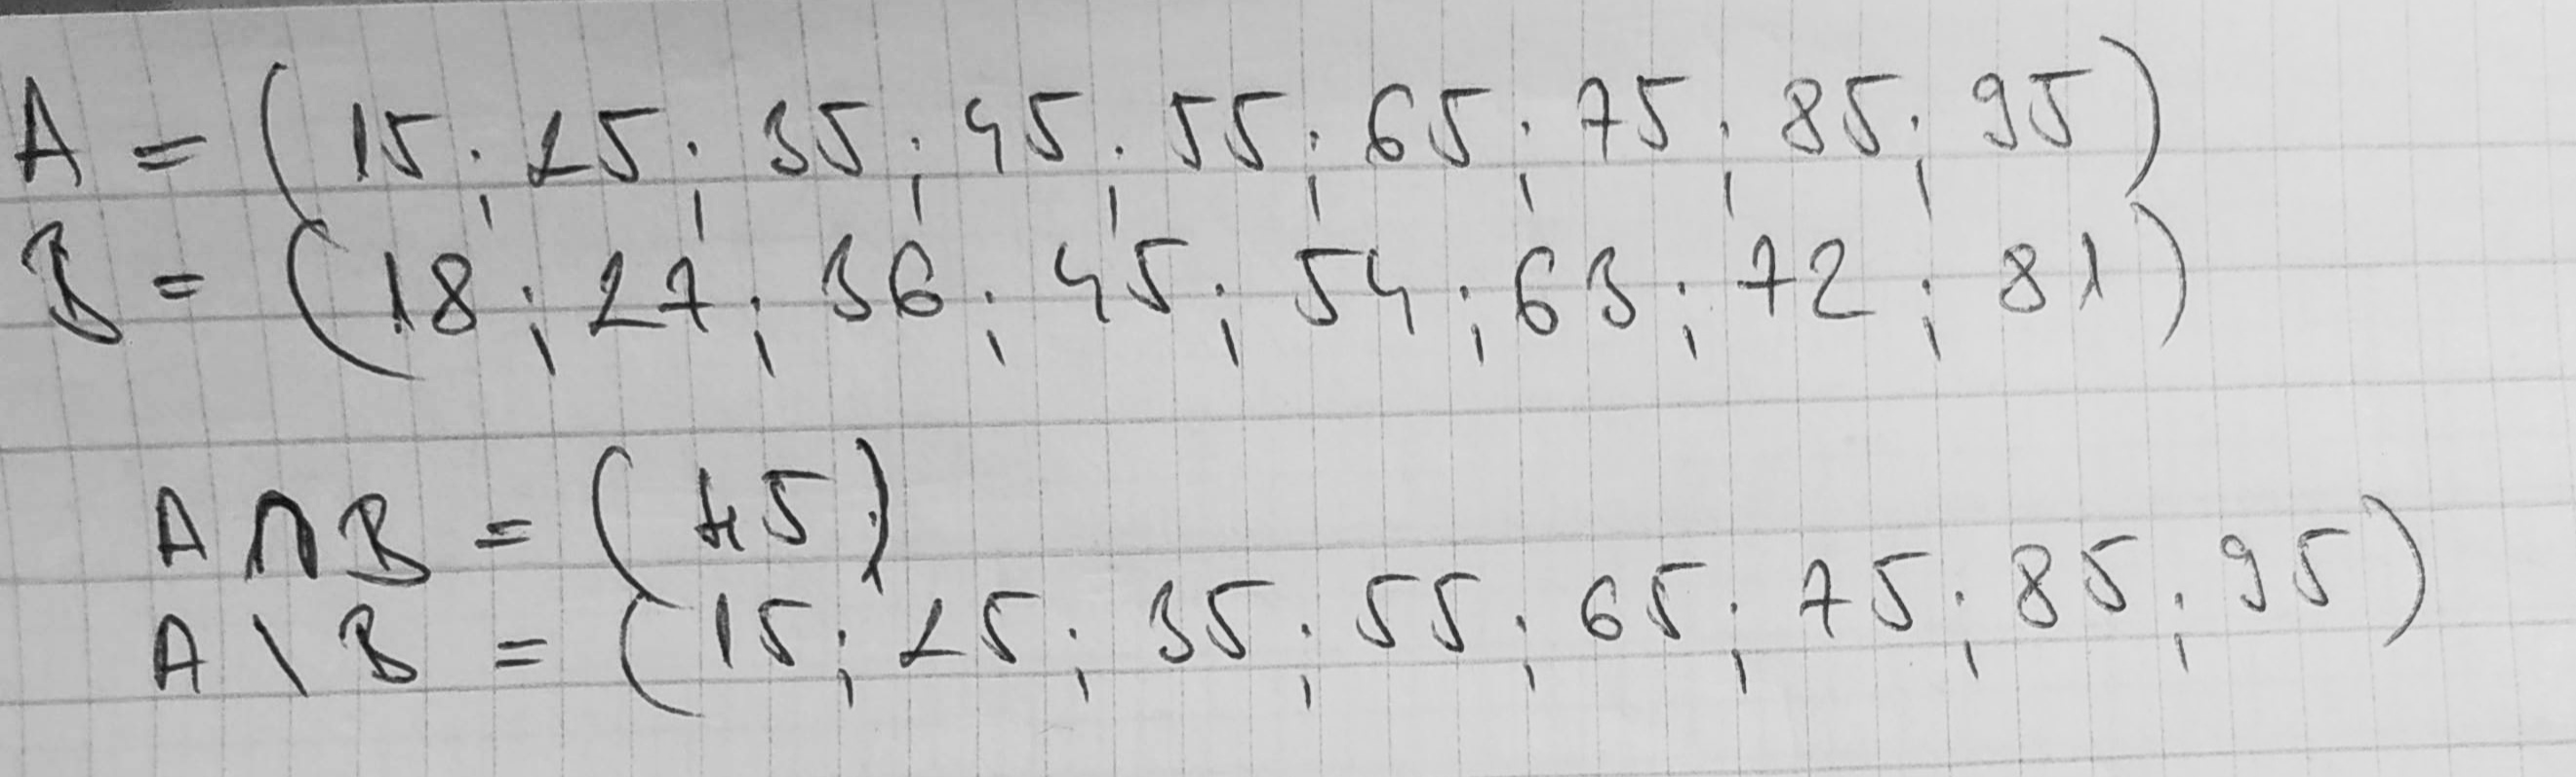 A = (15; 25; 35; 45; 55; 65; 75; 85; 95)
B = (18; 27; 36; 45; 54; 63; 72; 81)
A ∩ B = (45)
A \ B = (15; 25; 35; 55; 65; 75; 85; 95)